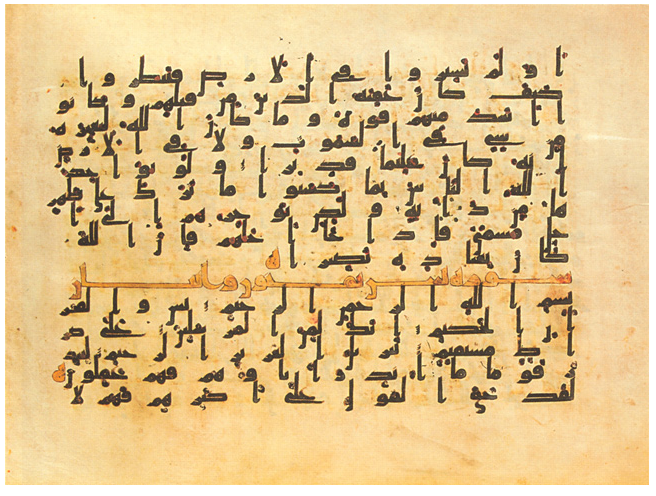 اولم يسيروا في الارض فينظروا
كيف كان عقبة الذين من قبلهم وكانو
ا اشد منهم قوة وما كان الله ليعجزه
من شي في السموت ولا في الارض
انه كان عليما قديرا ولو يؤاخذ
الله الناس بما كسبوا ما ترك على ظهر
ها من دابة ولكن يؤخرهم الى ا
جل مسمى فاذا جا اجلهم فان الله
كان بعباده بصيرا
سورة يس
بسم الله الرحمن الرحيم يس والقر
ان الحكيم انك لمن المرسلين على صر
ط مستقيم تنزيل العزيز الرحيم لتنذر
قوما ما انذر اباوهم فهم غفلون
لقد حق القول على اكثرهم فهم لا